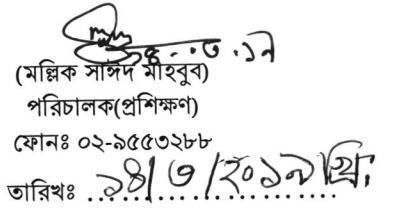 ১৪.০৩.১৯
(মল্লিক সাঈদ মাহবুব)
পরিচালক(প্রশিক্ষণ)
ফোনঃ ০২-৯৫৫৩২৮৮
তারিখঃ ১৪/৩/২০১৯ খ্রি: